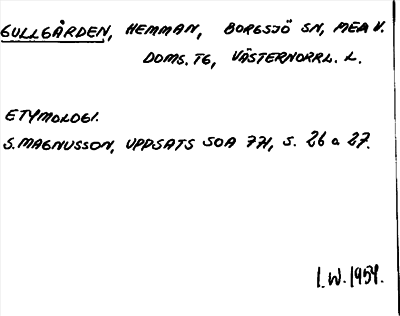 GULLGÅRDEN, HEMMAN, BORGSJÖ SN, MEA V.
DOMS. TG, VÄSTERNORRL. L.
ETYMOLOGI.
S. MAGNUSSON, UPPSATS SOA 771, S. 26 o 27.
I.W. 1954.